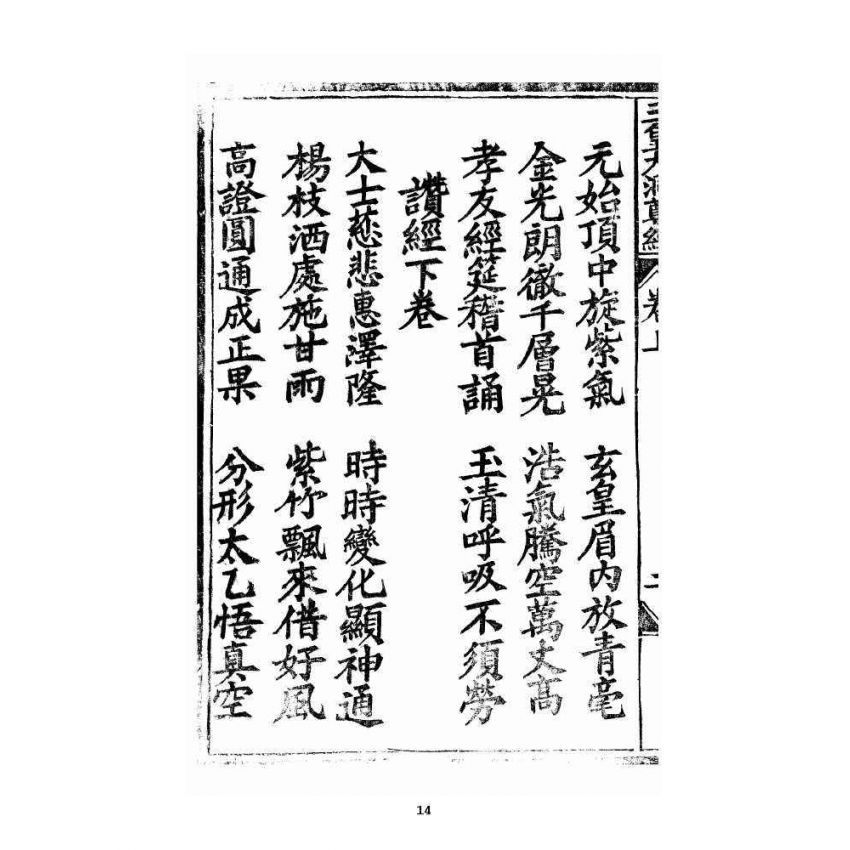 大洞真經 卷上 二
元始頂中旋紫氣 玄皇眉內放青毫
金光朗徹千層晃 浩氣騰空萬丈高
孝友經筵稽首誦 玉清呼吸不須勞
讚經下卷
大士慈悲惠澤隆 時時變化顯神通
楊枝洒處施甘雨 紫竹飄來借好風
高證圓通成正果 分形太乙悟真空
14